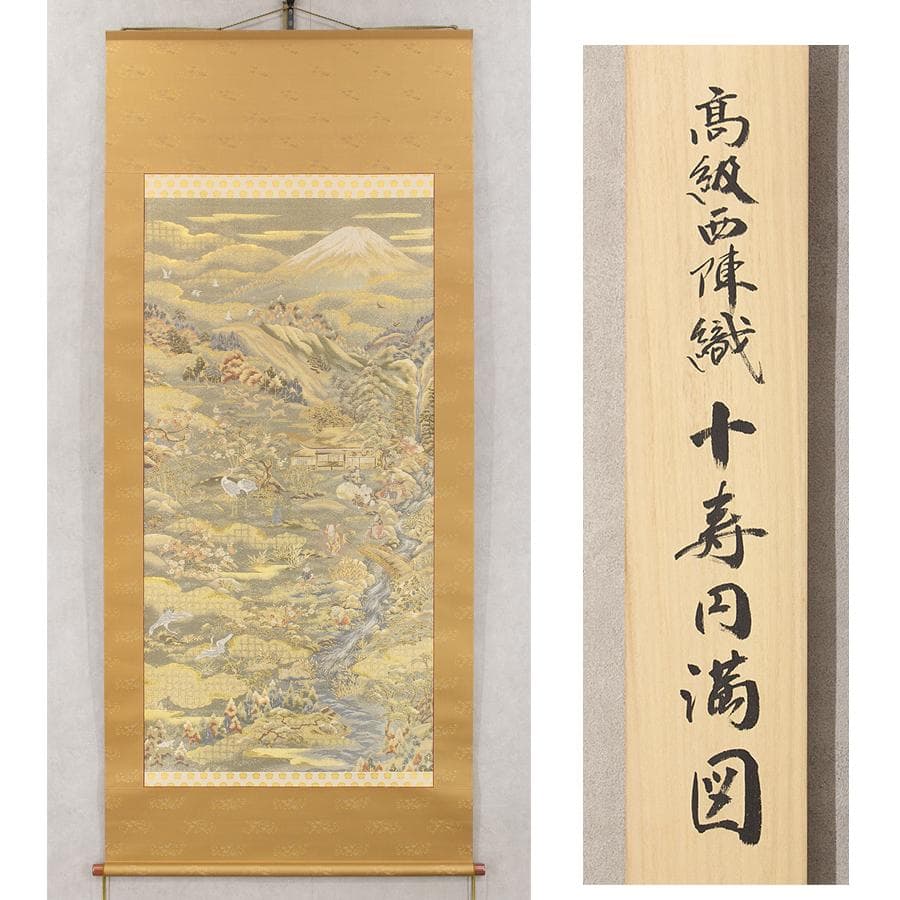 高級西陣織十寿円満図